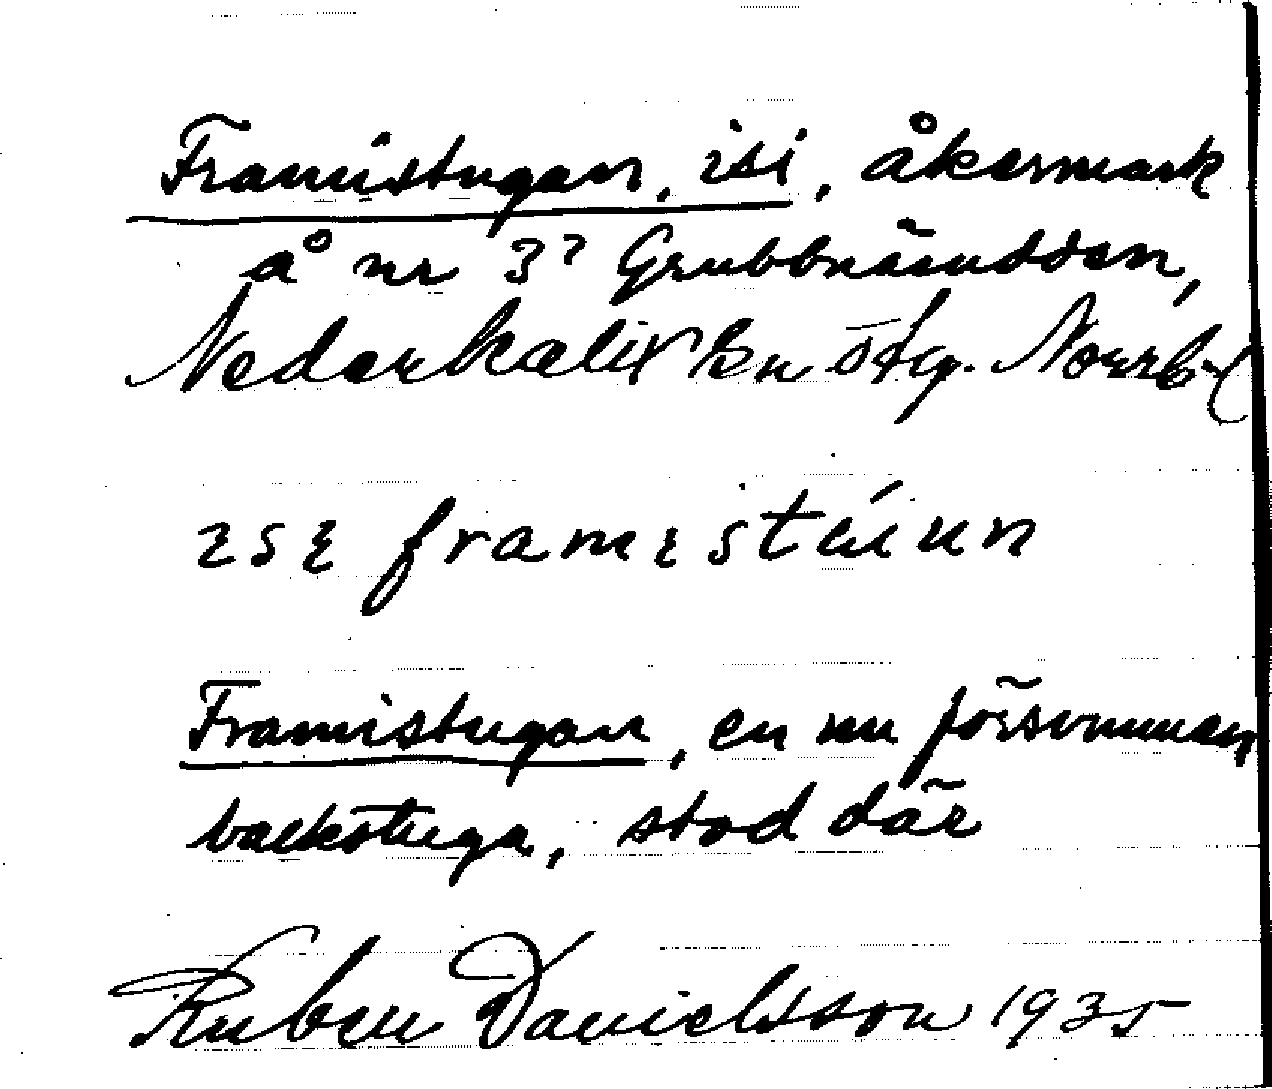 Framistugan, isi, åkermark
å nr 37 Grubbnäsudden,
Nederkalix sn ö tg. Norrb. l
ısı framıstúun
Framistugan, en nu försvunnen
backstuga, stod där
Ruben Danielsson 1935